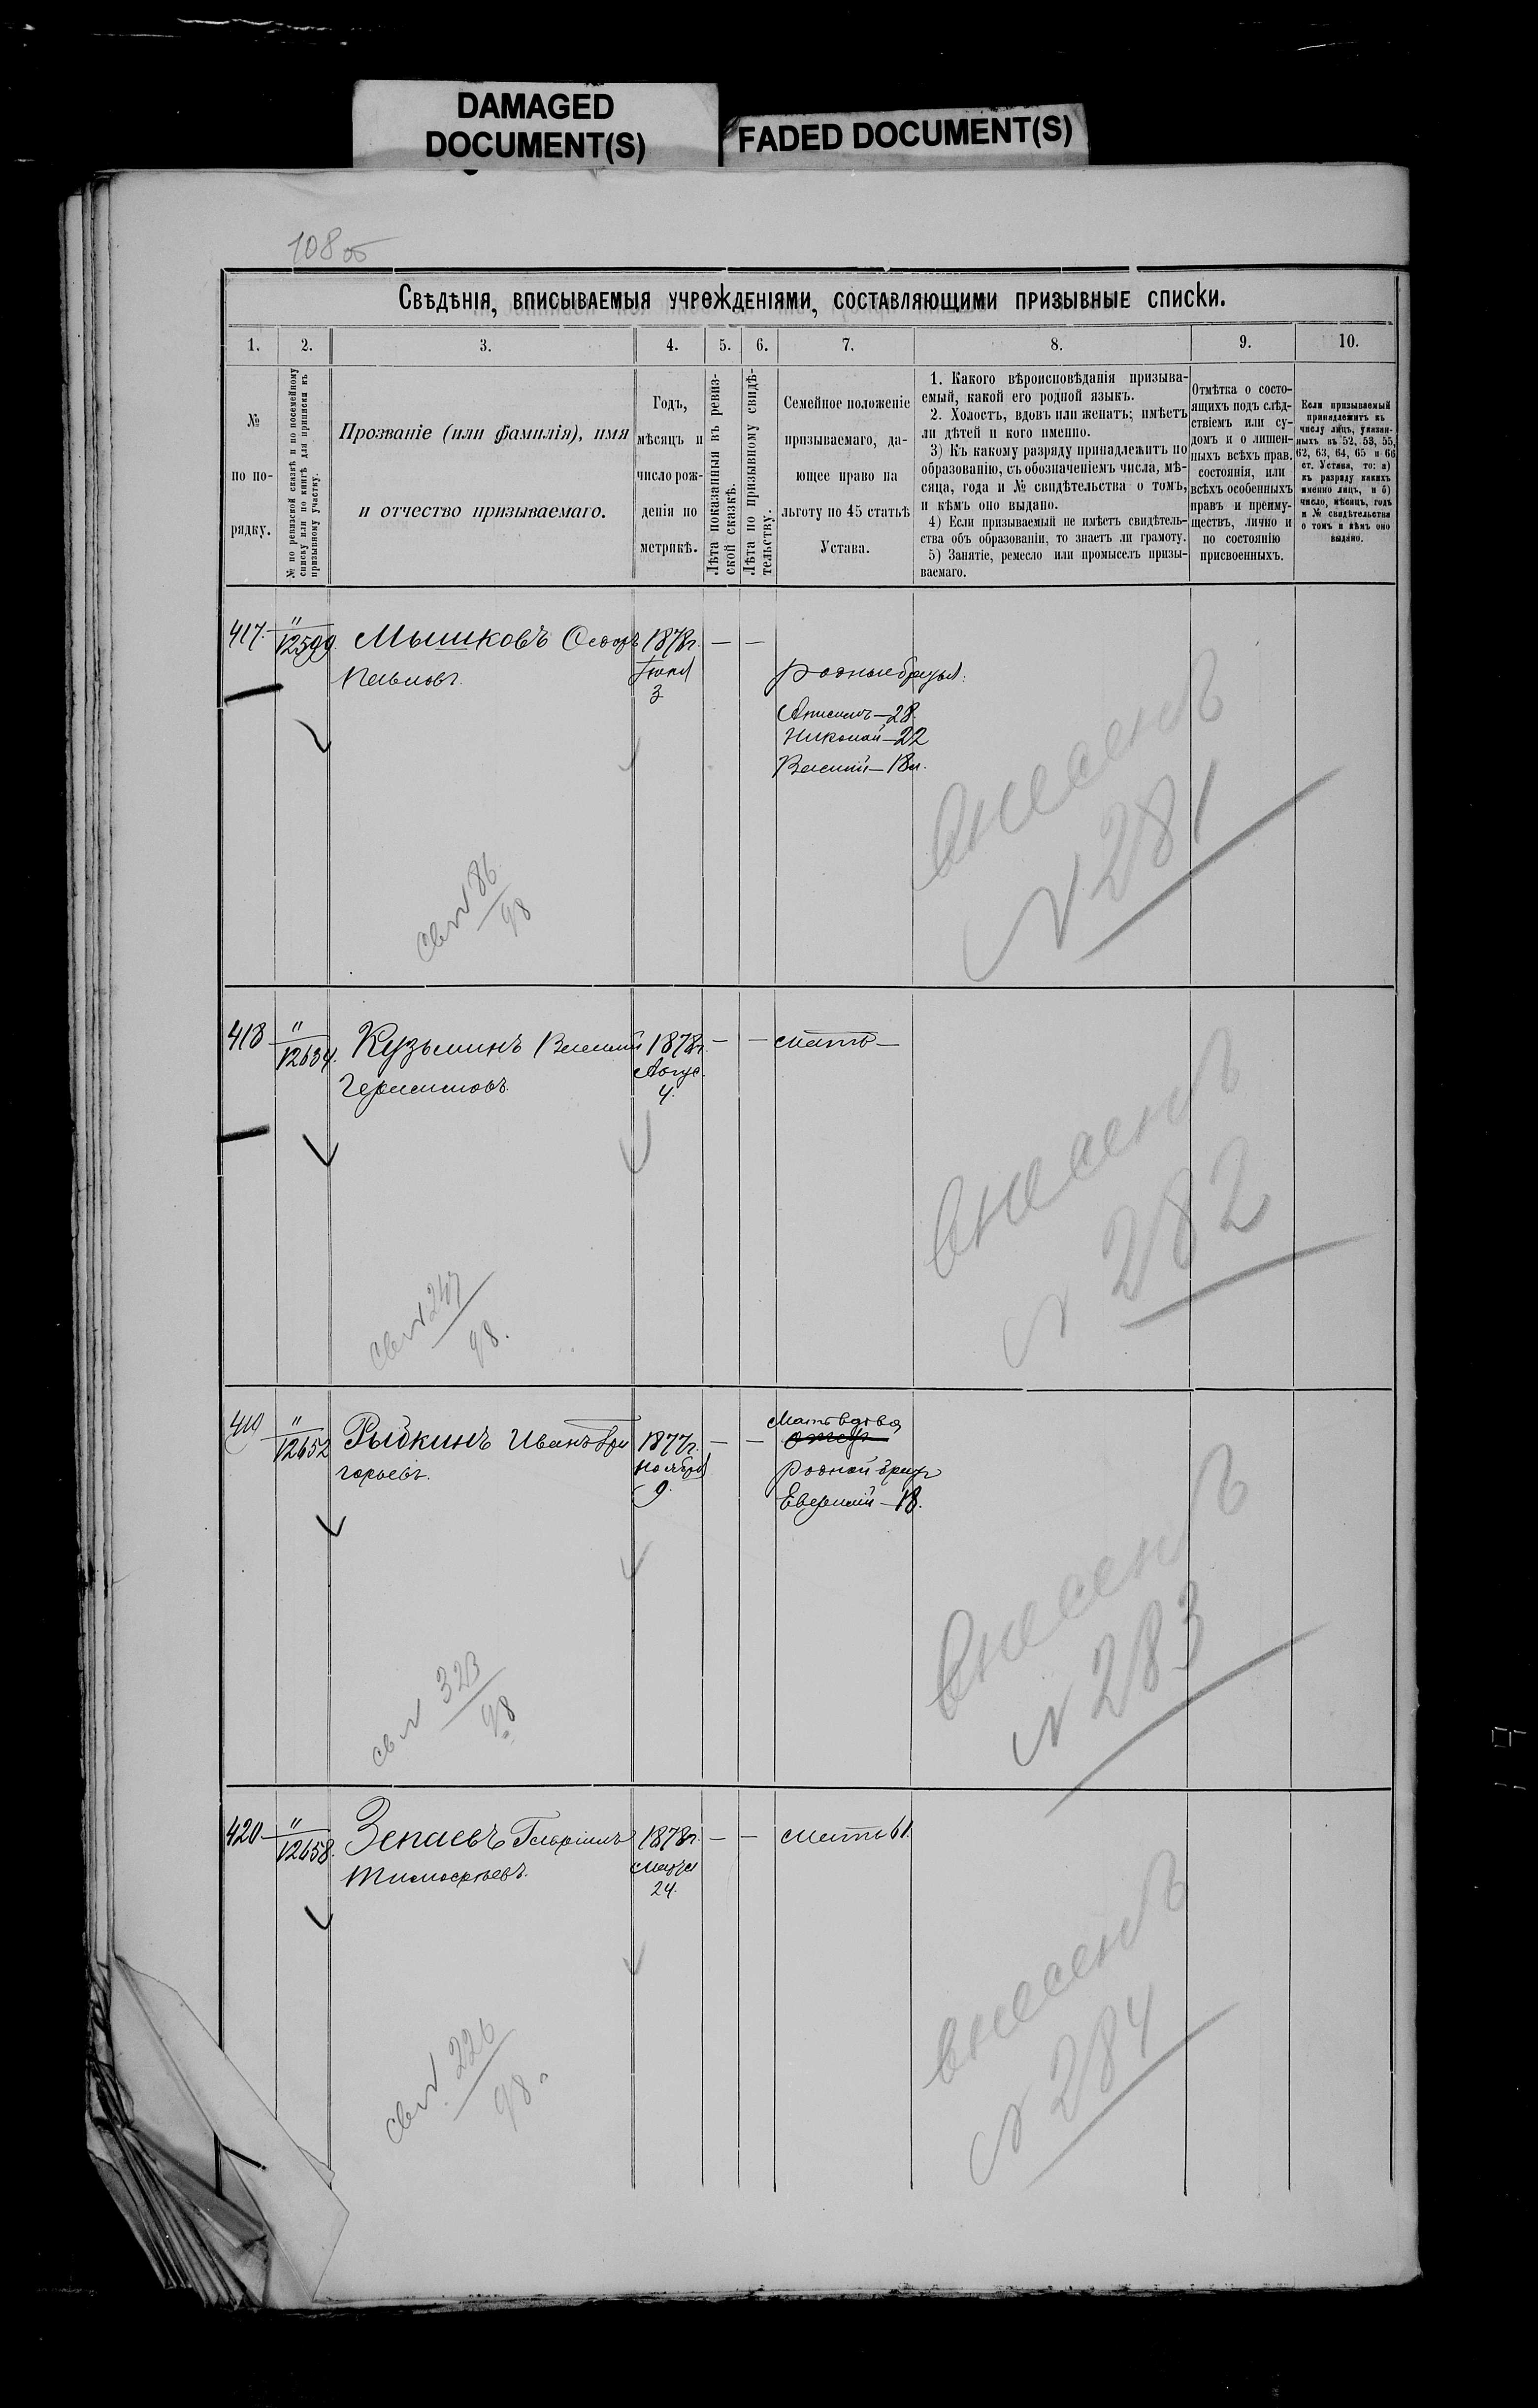 DAMAGED
DOCUMENT(S)
FADED DOCUMENT(S)
108 об
Свѣдѣнія, вписываемыя учрежденіями, составляющими призывные списки.
1. 2. 3. 4. 5. 6. 7. 8. 9. 10.
№
по по-
рядку.
№ по ревизской сказкѣ и по посемейному
списку или по книгѣ для приписки къ
призывному участку.
Прозваніе (или фамилія), имя
и отчество призываемаго.
Годъ,
мѣсяцъ и
число рож-
денія по
метрикѣ.
Лѣта показанныя въ ревиз-
ской сказкѣ.
Лѣта по призывному свидѣ-
тельству.
Семейное положеніе
призываемаго, да-
ющее право на
льготу по 45 статьѣ
Устава.
1. Какого вѣроисповѣданія призыва-
емый, какой его родной языкъ.
2. Холостъ, вдовъ или женатъ; имѣетъ
ли дѣтей и кого именно.
3) Къ какому разряду принадлежитъ по
образованію, съ обозначеніемъ числа, мѣ-
сяца, года и № свидѣтельства о томъ,
и кѣмъ оно выдано.
4) Если призываемый не имѣетъ свидѣтель-
ства объ образованіи, то знаетъ ли грамоту.
5) Занятіе, ремесло или промыселъ призы-
ваемаго.
Отмѣтка о состо-
ящихъ подъ слѣд-
ствіемъ или су-
домъ и о лишен-
ныхъ всѣхъ прав.
состоянія, или
всѣхъ особенныхъ
правъ и преиму-
ществъ, лично и
по состоянію
присвоенныхъ.
Если призываемый
принадлежитъ къ
числу лицъ, указан-
ныхъ въ 52, 53, 55,
62, 63, 64, 65 и 66
ст. Устава, то: а)
къ разряду какихъ
именно лицъ, и б)
число, мѣсяцъ, годъ
и № свидѣтельства
о томъ и кѣмъ оно
выдано.
417. " 12599. Мышковъ Ѳедоръ 1878г. — —
Павловъ. Іюня родные братья:
3
Анисимъ—28.
Николай—22
Василій—18л.
внесенъ
№ 281
св № 86
98
418 " 12634. Кузьминъ Василій 1878г. — — мать—
Герасимовъ. Авгус.
4.
внесенъ
№ 282
св № 247
98.
419 " 12652 Рыбкинъ Иванъ Гри 1877г. — — Мать вдова
отец
горьевъ. Ноября родной братъ
9. Евграфій—18.
внесенъ
№ 283
св № 323
98
420 " 12658. Зепаевъ Гавріилъ 1878г. — — мать 61.
Тимофеевъ. Марта
24.
внесенъ
№ 284
св № 226
98.